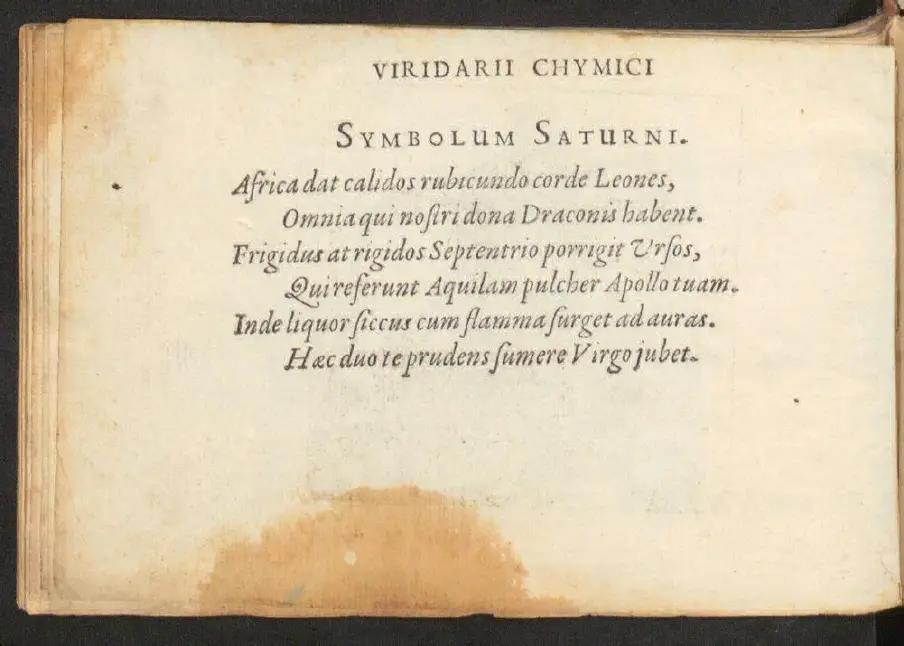 VIRIDARII CHYMICI
SYMBOLUM SATURNI.
Africa dat calidos rubicundo corde Leones,
Omnia qui noſtri dona Draconis habent.
Frigidus at rigidos Septentrio porrigit Urſos,
Qui referunt Aquilam pulcher Apollo tuam.
Inde liquor ſiccus cum flamma ſurget ad auras.
Hæc duo te prudens ſumere Virgo jubet.